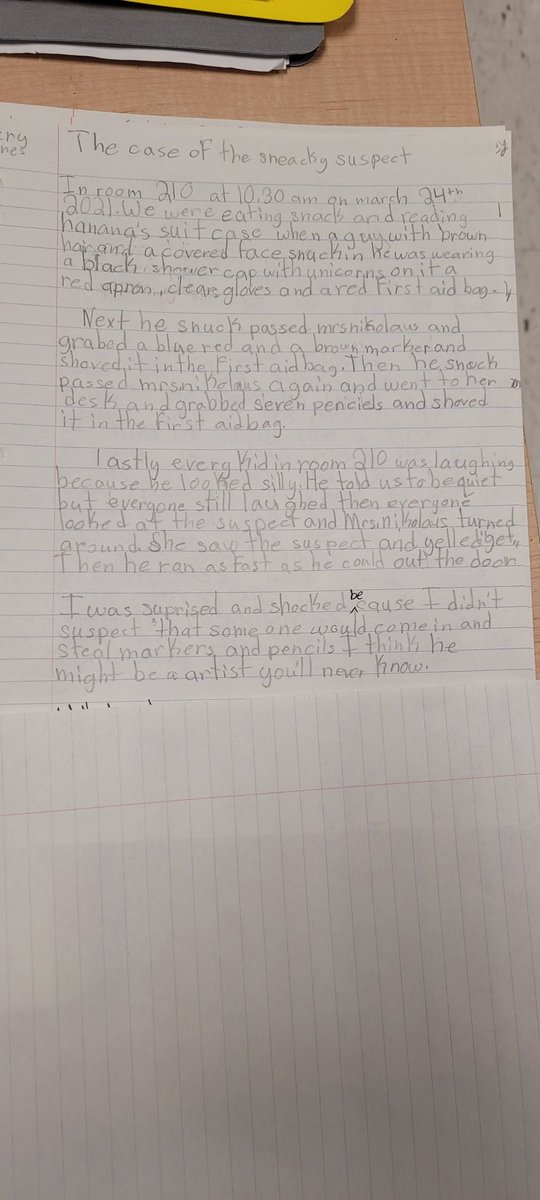 The case of the sneacky suspect
In room 210 at 10.30 am on march 24th
2021. We were eating snack and reading
hanana's suitcase when a guy with brown
hair and a covered face snuck in he was wearing
a black shower cap with unicorns on it a
red apron, clear gloves and a red first aid bag.
Next he snuck passed mrsnikolaus and
grabed a blue red and a brown marker and
shoved it in the first aid bag. Then he snuck
passed mrsnikolaus again and went to her
desk and grabbed seven penciels and shoved
it in the first aid bag.
lastly every kid in room 210 was laughing
because he looked silly. He told us to be quiet
but everyone still laughed, then everyone
looked at the suspect and Mrs.nikolaus turned
around. She saw the suspect and yelled "get"
Then he ran as fast as he could out the door
I was suprised and shocked because I didn't
suspect that some one would come in and
steal markers and pencils I think he
might be a artist you'll never know.